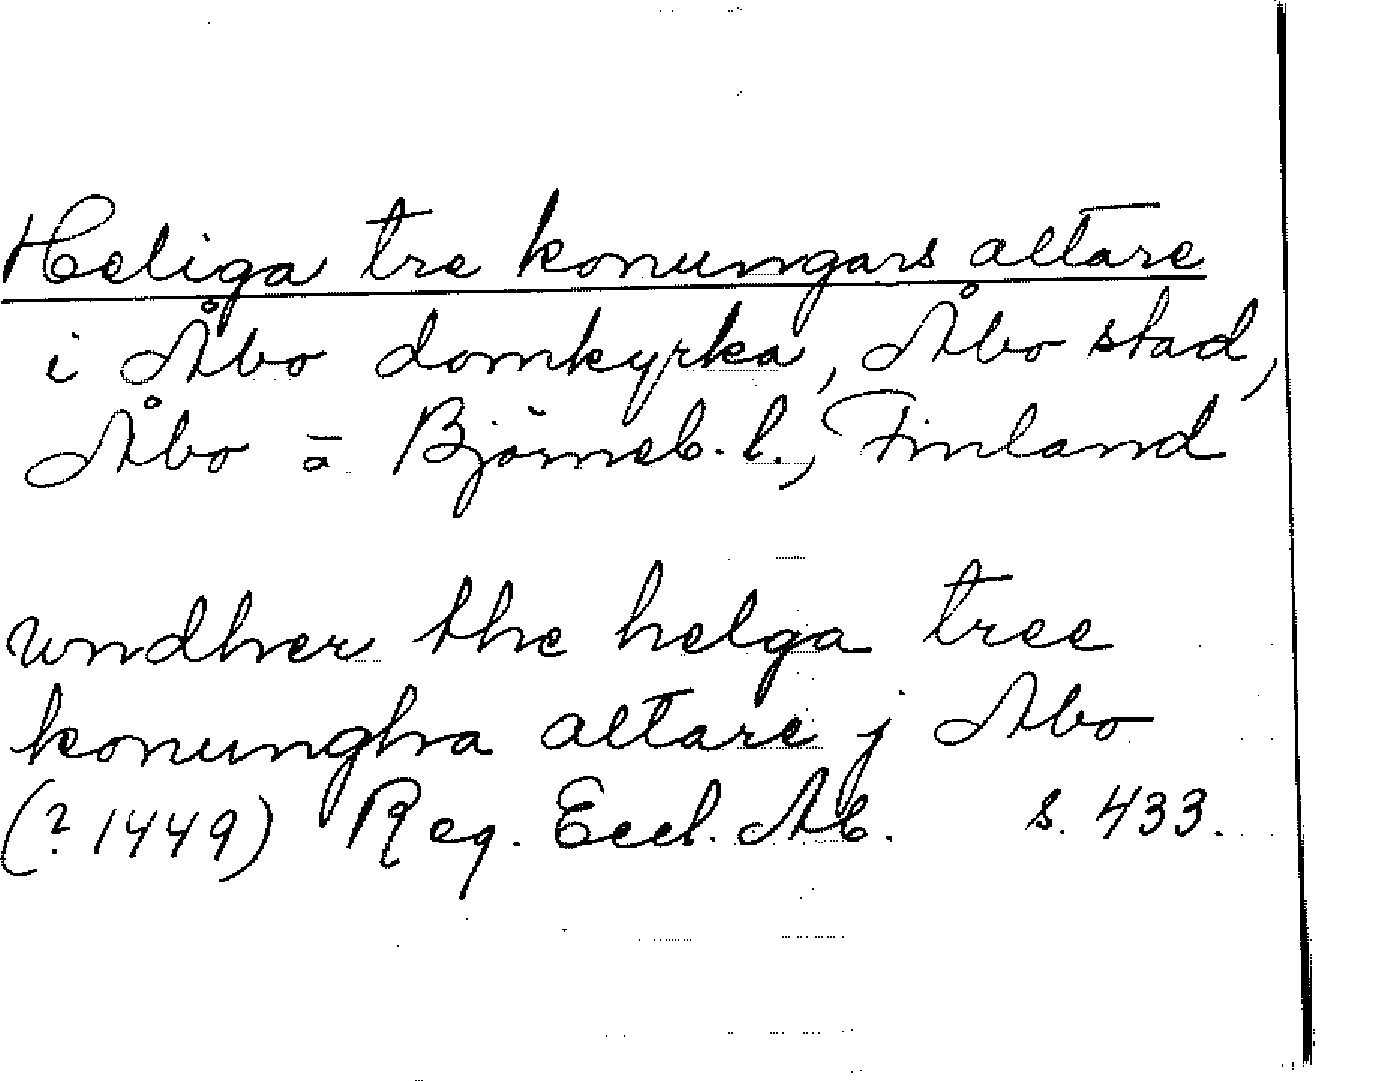 Heliga tre konungars altare
i Åbo domkyrka, Åbo stad,
Åbo = Björneb. l., Finland
undher the helga tree
konungha altare j Abo
(? 1449) Reg. Eccl. Ab. s. 433.